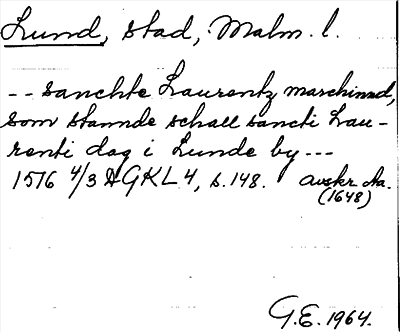 Lund, stad, Malm. l.
-- sanchte Laurentz marchinnd,
som stannde schall sancti Lau-
renti dag i Lunde by ---
1516 4/3 HGKL 4, s. 148. avskr.
(1648)
G.E. 1964.